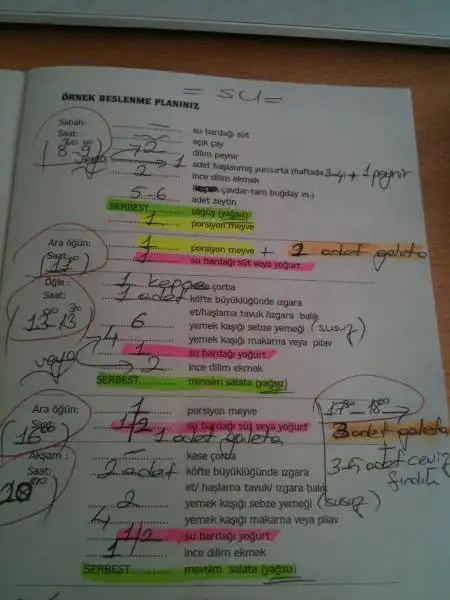 = SU =
ÖRNEK BESLENME PLANINIZ
Sabah:
Saat: — su bardağı süt
— açık çay
(8³⁰-9⁰⁰) 2 dilim peynir
veya 1 adet haşlanmış yumurta (haftada 3-4) + 1 peynir
2 ince dilim ekmek
(çavdar-tam buğday vs.)
5-6 adet zeytin
SERBEST soğuş (yağsız)
1 porsiyon meyve
Ara öğün: 1 porsiyon meyve + 1 adet galeta
Saat: 1 su bardağı süt veya yoğurt
Öğle : 1 kepçe kase çorba
Saat: 1 adet köfte büyüklüğünde ızgara
et/haşlama tavuk /ızgara balık
13⁰⁰-13³⁰ 6 yemek kaşığı sebze yemeği (susuz)
4 yemek kaşığı makarna veya pilav
1 su bardağı yoğurt
veya 2 ince dilim ekmek
SERBEST mevsim salata (yağsız)
17³⁰-18⁰⁰
Ara öğün: 1 porsiyon meyve
Saat: 1/2 su bardağı süt veya yoğurt 3 adet galeta
(16⁰⁰) 1 adet galeta
+
Akşam : — kase çorba 3-5 adet ceviz
Saat: 2 adet köfte büyüklüğünde ızgara fındık
et/ haşlama tavuk/ ızgara balık
20⁰⁰ 2 yemek kaşığı sebze yemeği (susuz)
4 yemek kaşığı makarna veya pilav
1/2 su bardağı yoğurt
1 ince dilim ekmek
SERBEST mevsim salata (yağsız)